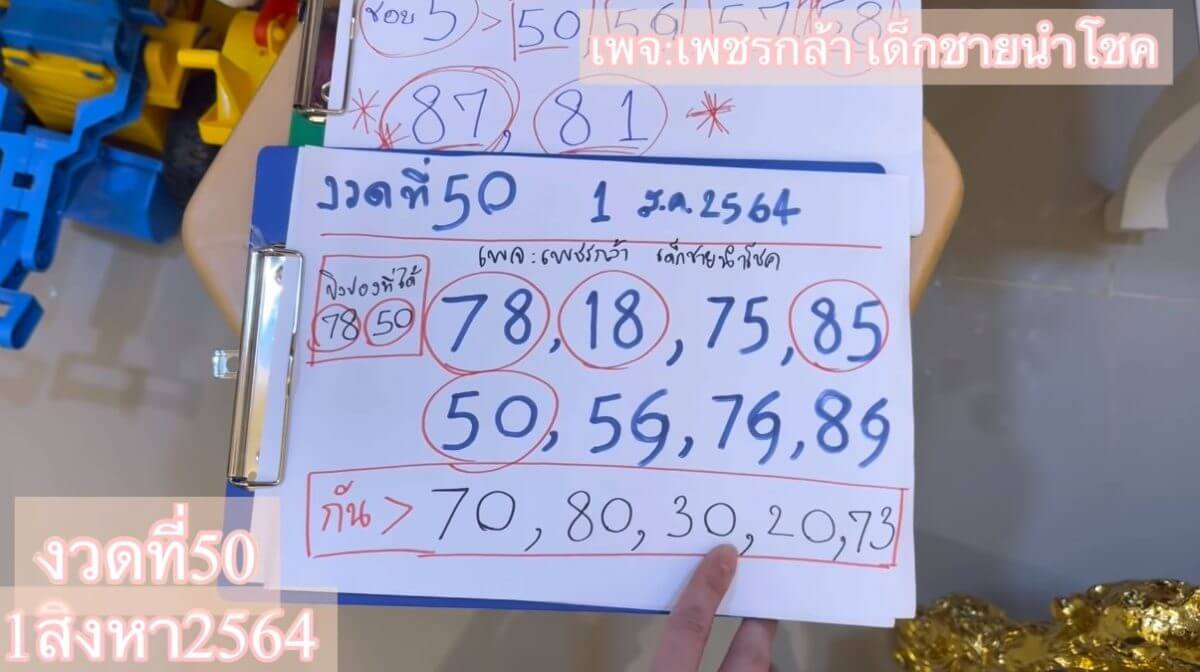 ชอบ 5 > 50 56 57 58
เพจ:เพชรกล้า เด็กชายนำโชค
87, 81
งวดที่ 50 1 ส.ค. 2564
เพจ:เพชรกล้า เด็กชายนำโชค
ปิงปองที่ได้
78 50
78, 18, 75, 85
50, 56, 76, 86
กัน > 70, 80, 30, 20, 73
งวดที่50
1สิงหา2564